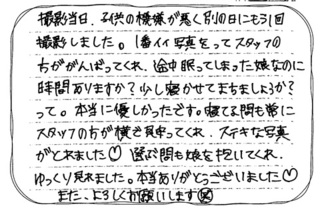 撮影当日、子供の機嫌が悪く別の日にもう1回
撮影しました。1番イイ写真をってスタッフの
方ががんばってくれ、途中眠ってしまった娘なのに
時間ありますか?少し寝かせてまちましょうか?
って。本当に優しかったです。寝てる間も常に
スタッフの方が横で見守ってくれ、ステキな写真
がとれました♡ 選ぶ間も娘を抱いてくれ、
ゆっくり見れました。本当ありがとうございました♡
また、よろしくお願いします